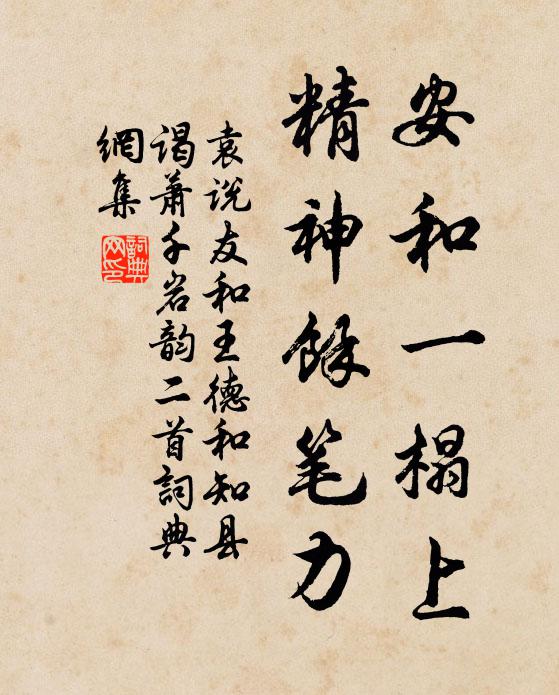 安和一榻上
精神餘笔力
袁说友和王德和知县
谒萧千岩韵二首詞典
網集
詞典网印